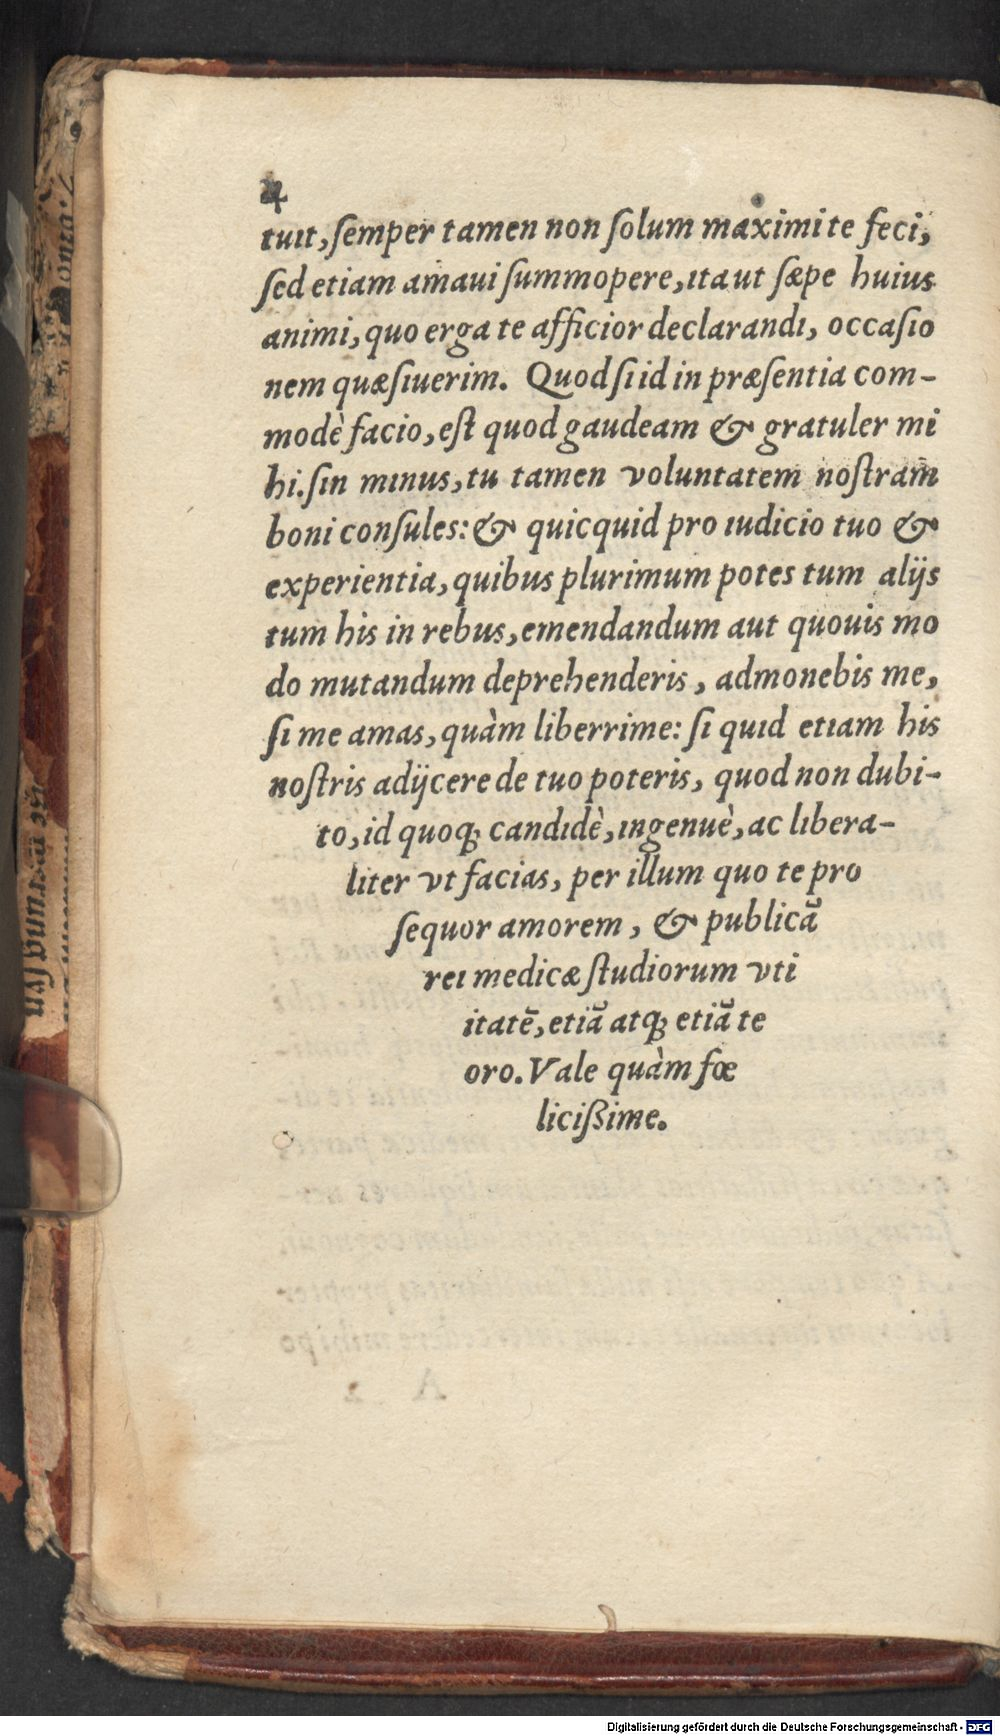 4
tuit, semper tamen non solum maximi te feci,
sed etiam amaui summopere, ita ut sæpe huius
animi, quo erga te afficior declarandi, occasio
nem quæsiuerim. Quod si id in præsentia com-
modè facio, est quod gaudeam & gratuler mi
hi. sin minus, tu tamen voluntatem nostram
boni consules: & quicquid pro iudicio tuo &
experientia, quibus plurimum potes tum alijs
tum his in rebus, emendandum aut quouis mo
do mutandum deprehenderis, admonebis me,
si me amas, quàm liberrime: si quid etiam his
nostris adijcere de tuo poteris, quod non dubi-
to, id quoq; candidè, ingenuè, ac libera-
liter vt facias, per illum quo te pro
sequor amorem, & publicā
rei medicæ studiorum vti
itatē, etiā atq; etiā te
oro. Vale quàm fœ
licißime.
Digitalisierung gefördert durch die Deutsche Forschungsgemeinschaft - DFG